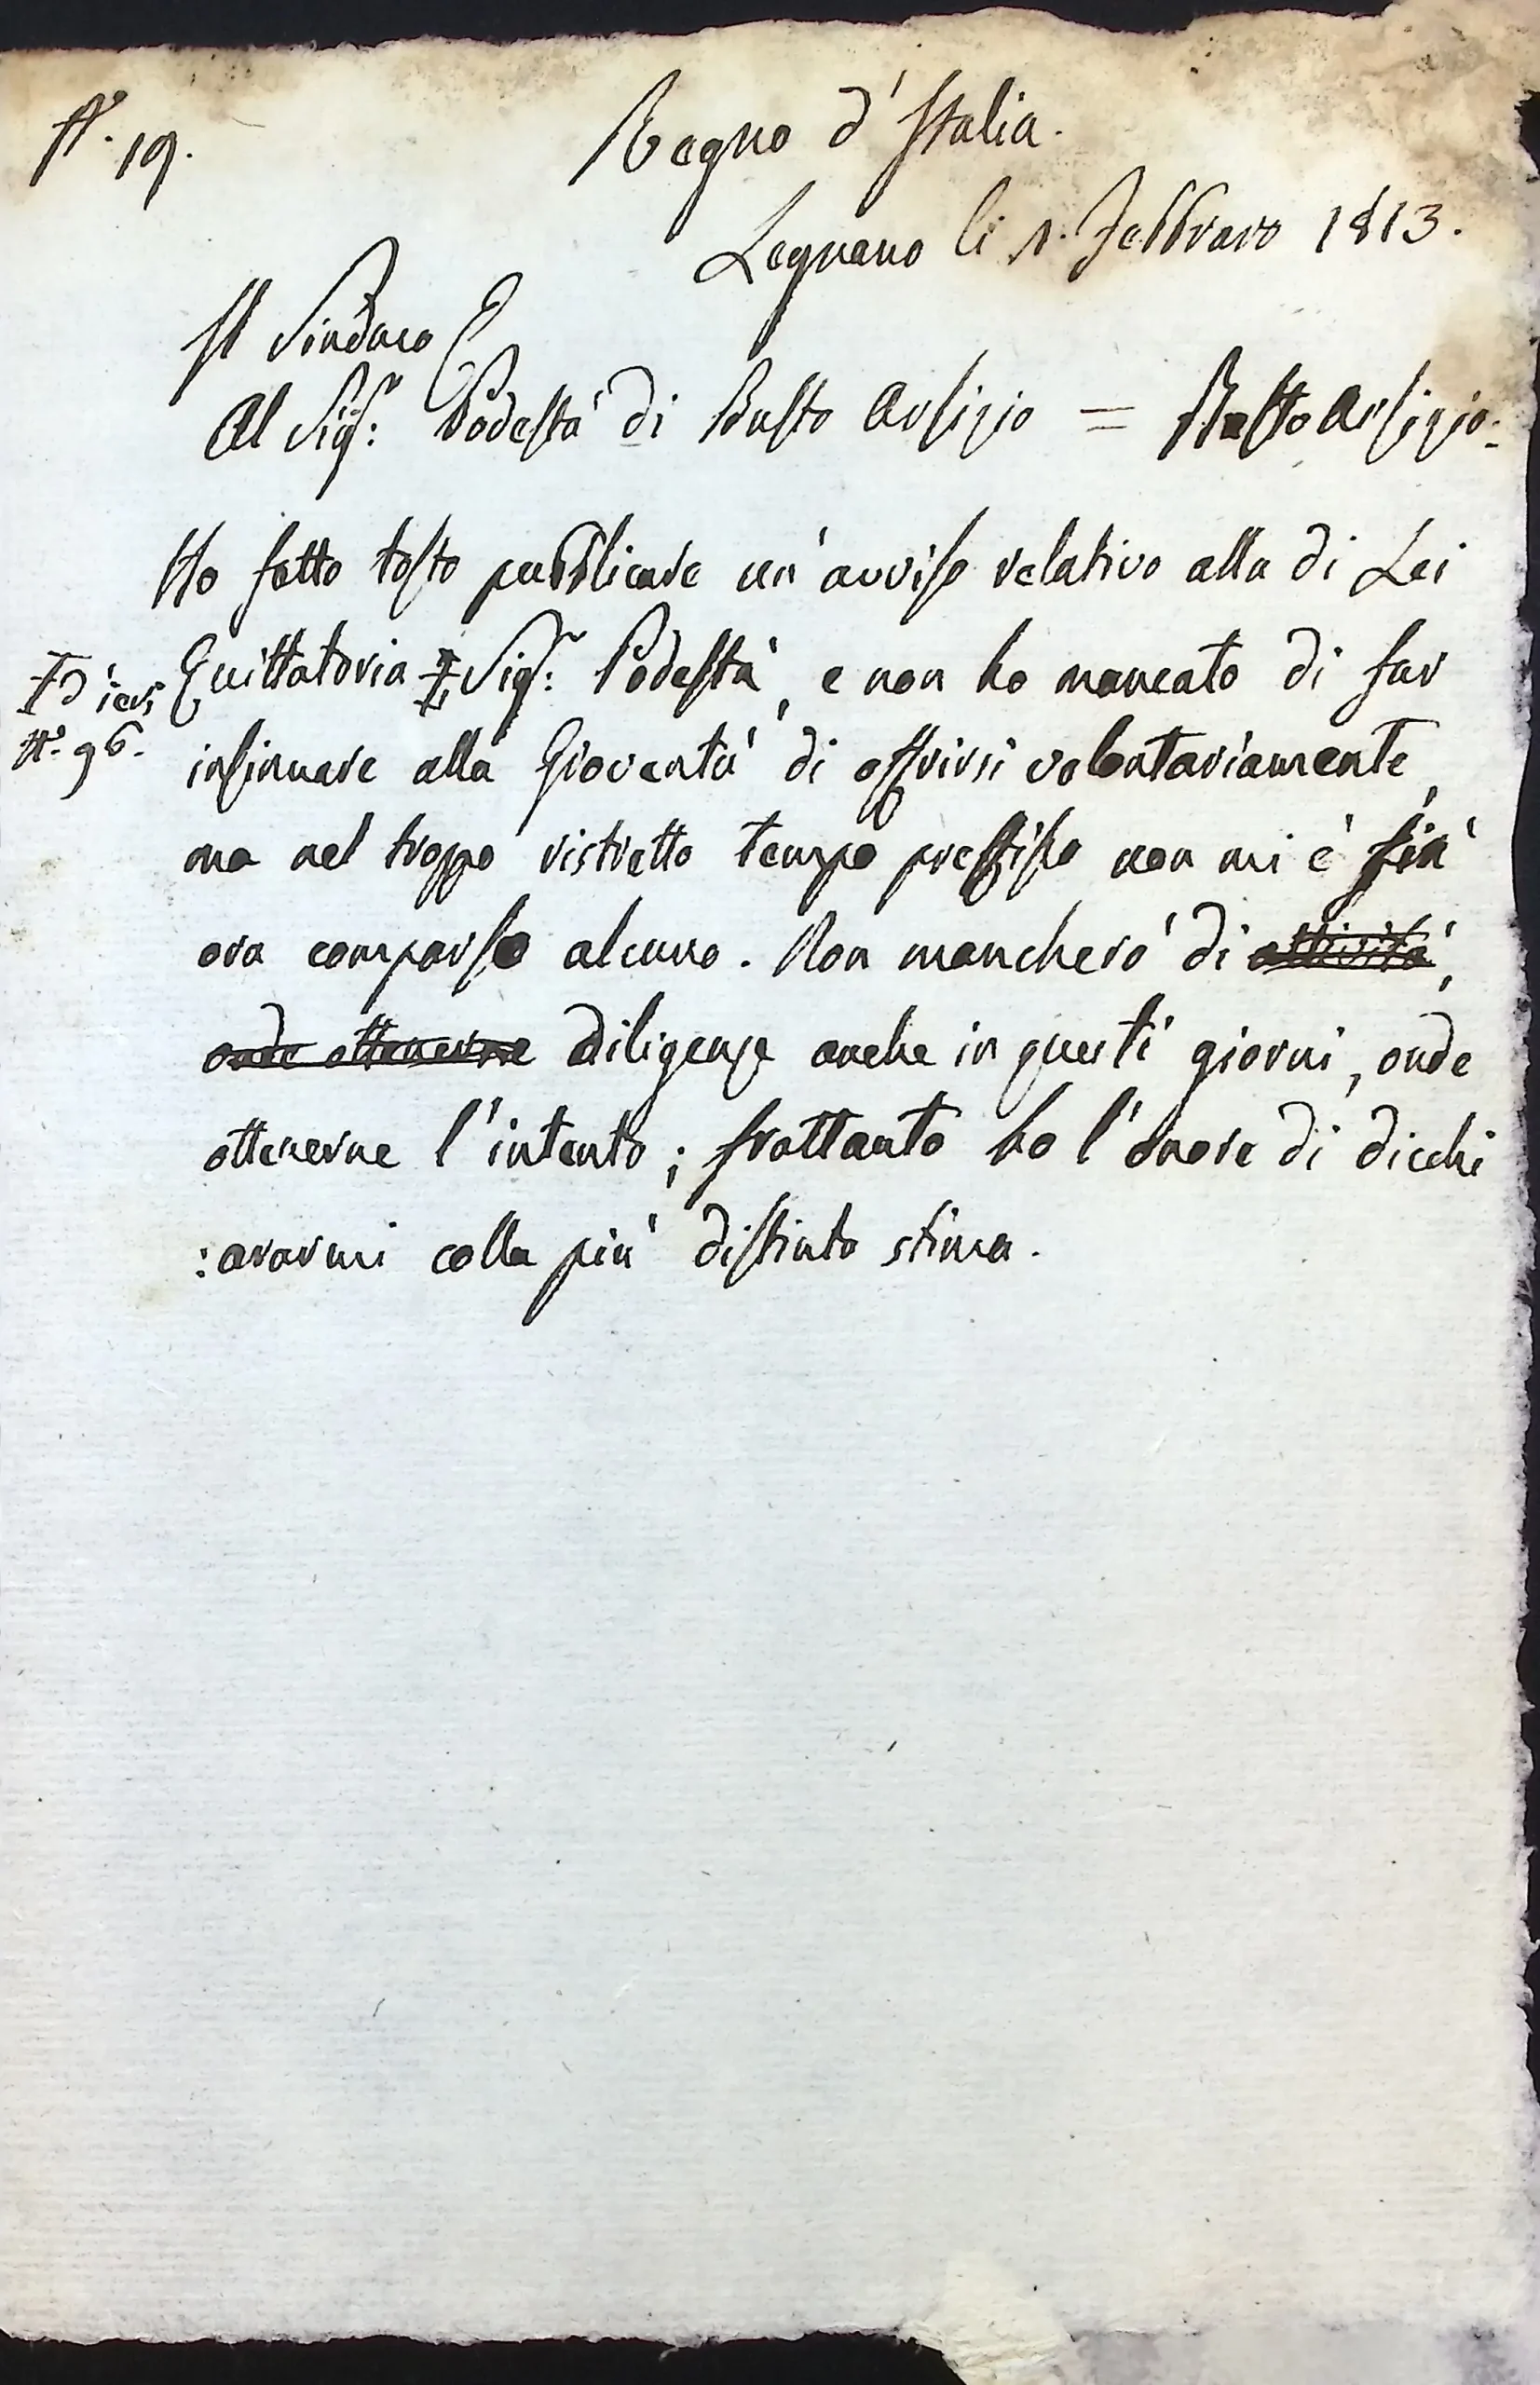 N.° 19.
Regno d'Italia.
Legnano li 1. Febbraro 1813.
Il Sindaco
Al Sig.r Podestà di Busto Arsizio = Busto Arsizio.
Ho fatto tosto pubblicare un'avviso relativo alla di Lei
Quittatoria ‡ Sig.r Podestà, e non ho mancato di far
‡ d'ieri
N.° 96.
insinuare alla Gioventù di offrirsi volontariamente,
ma nel troppo ristretto tempo prefisso non mi è sin'
ora comparso alcuno. Non mancherò di attività,
onde ottenerne diligenze anche in questi giorni, onde
ottenerne l'intento; frattanto ho l'onore di dicchi
:ararmi colla più distinta stima.